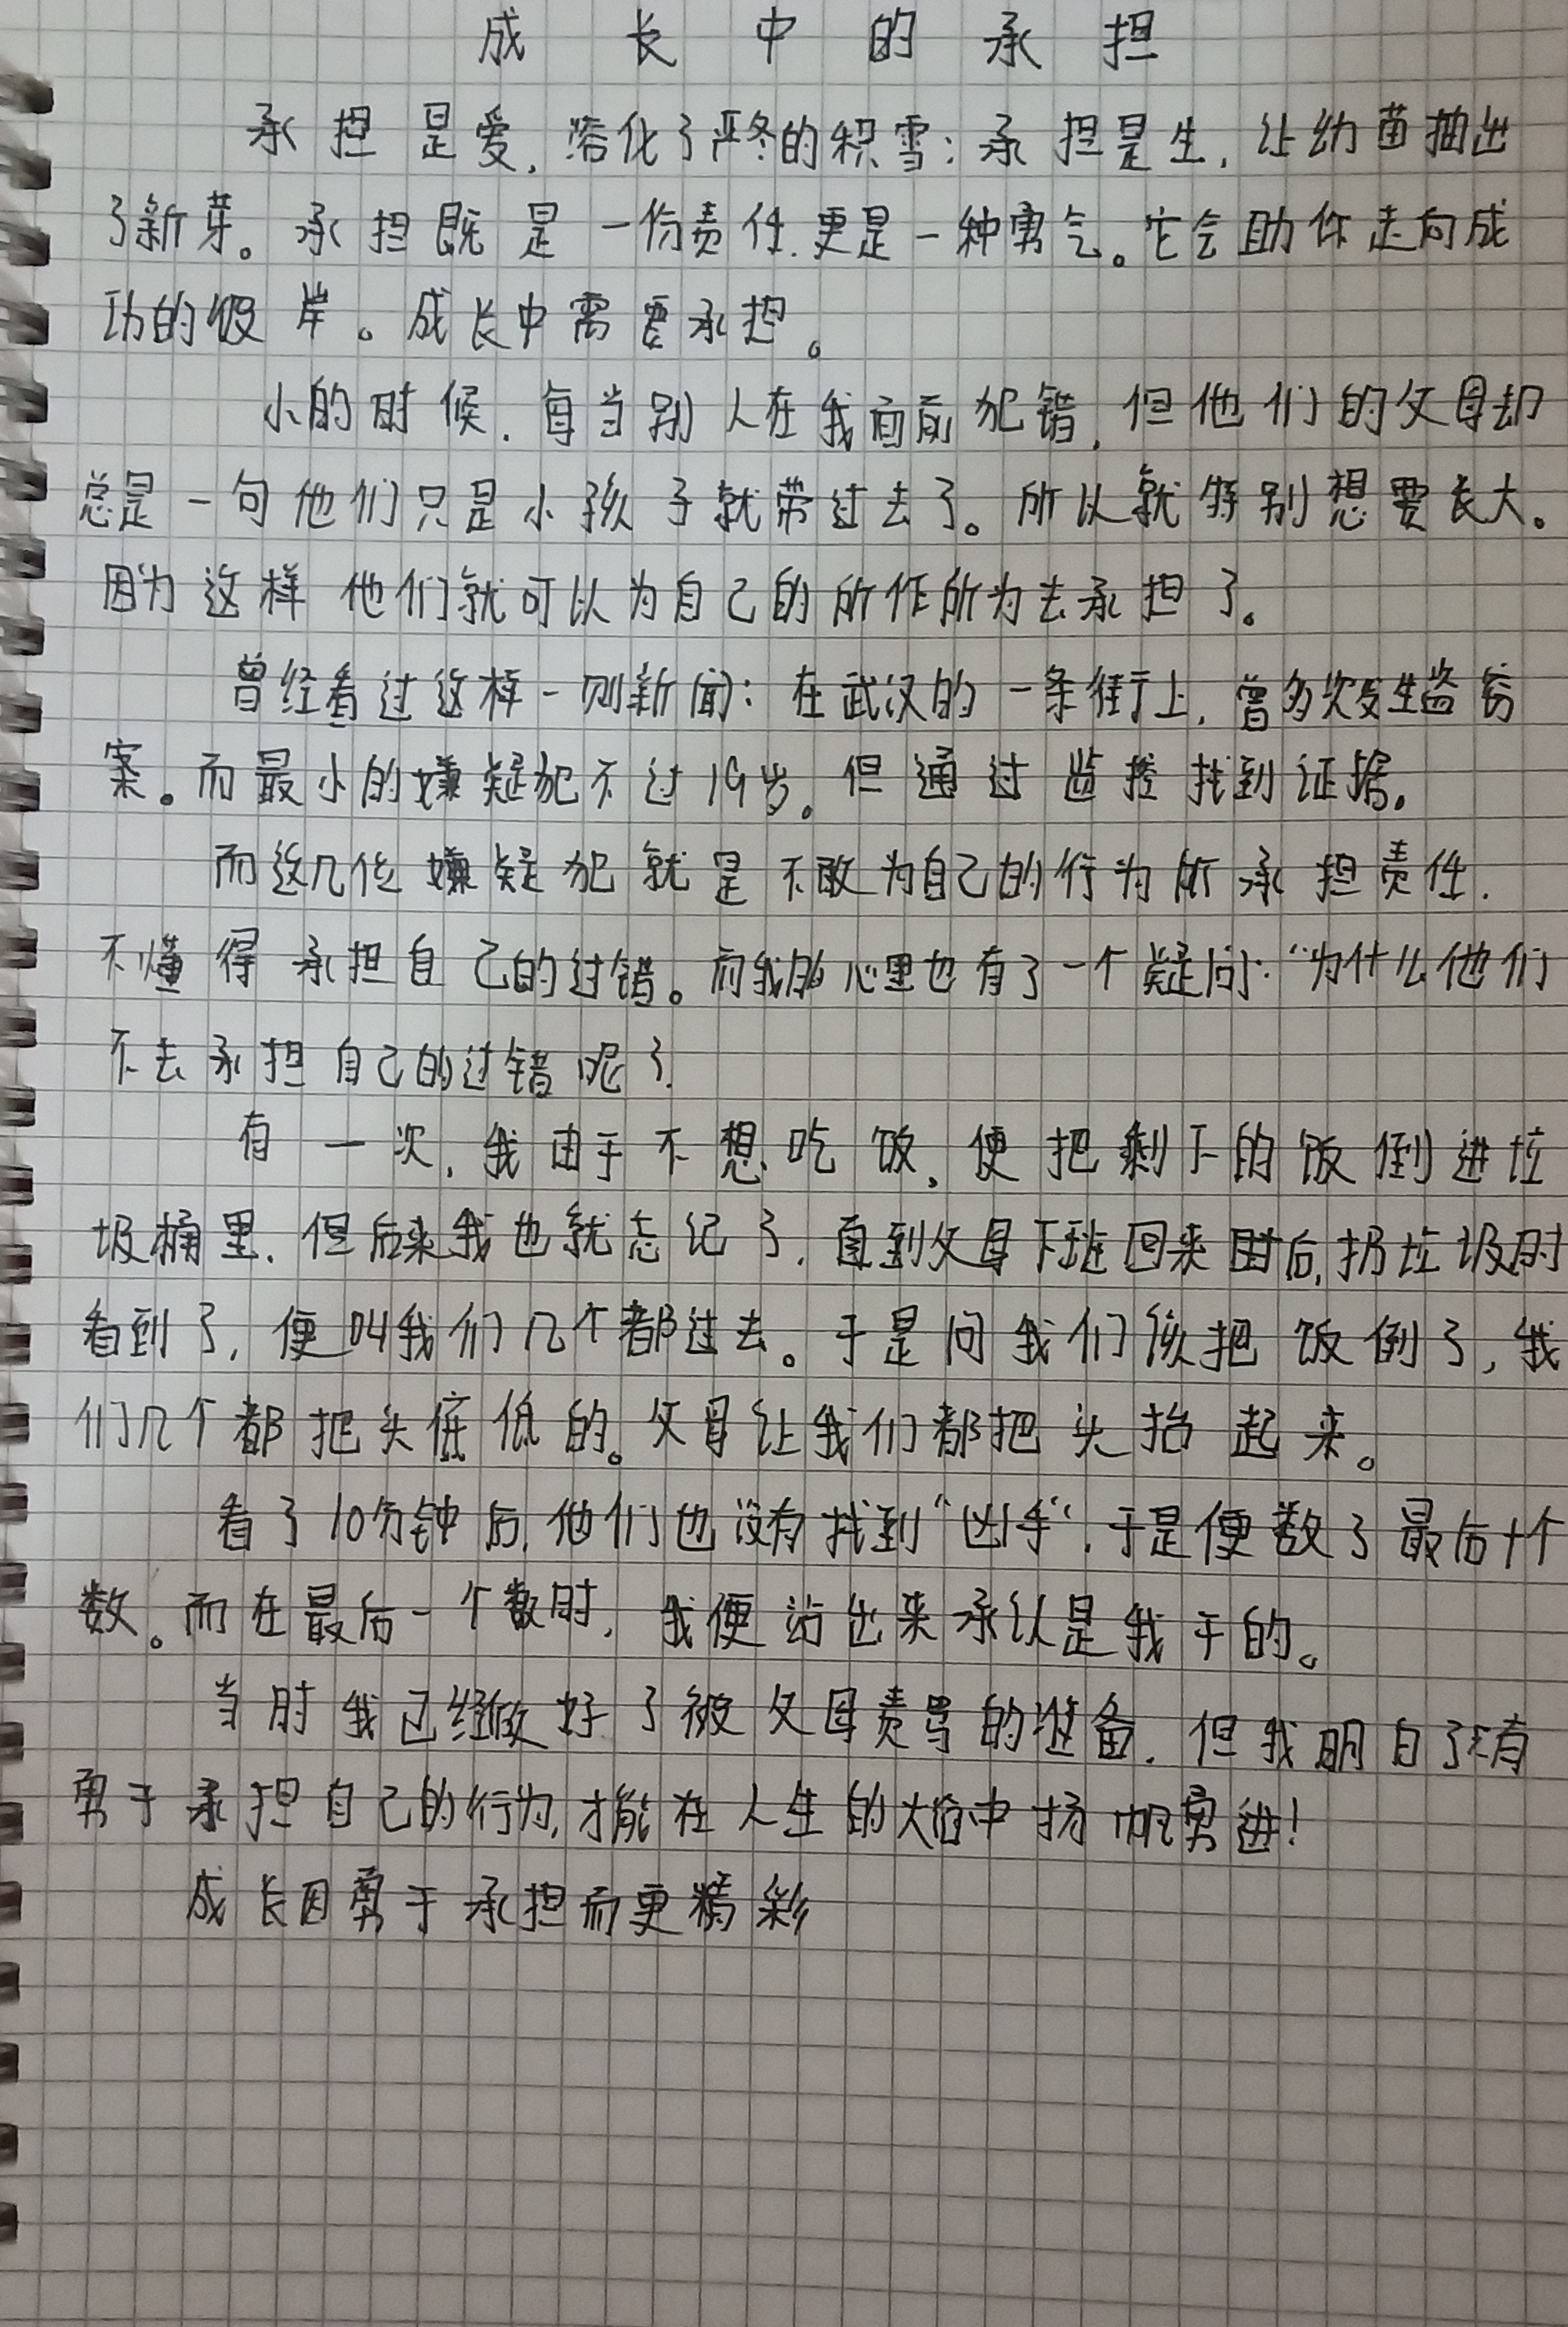 成长中的承担
承担是爱,溶化了严冬的积雪;承担是生,让幼苗抽出
了新芽。承担既是一份责任.更是一种勇气。它会助你走向成
功的彼岸。成长中需要承担。
小的时候.每当别人在我面前犯错,但他们的父母却
总是一句他们只是小孩子就带过去了。所以就特别想要长大。
因为这样他们就可以为自己的所作所为去承担了。
曾经看过这样一则新闻:在武汉的一条街上,曾多次发生盗窃
案。而最小的嫌疑犯不过19岁。但通过监控找到证据。
而这几位嫌疑犯就是不敢为自己的行为所承担责任.
不懂得承担自己的过错。而我的心里也有了一个疑问:“为什么他们
不去承担自己的过错呢?
有一次,我由于不想吃饭,便把剩下的饭倒进垃
圾桶里.但后来我也就忘记了.直到父母下班回来时后,扔垃圾时
看到了,便叫我们几个都过去。于是问我们谁把饭倒了,我
们几个都把头低低的。父母让我们都把头抬起来。
看了10分钟后,他们也没有找到“凶手”.于是便数了最后十个
数。而在最后一个数时,我便站出来承认是我干的。
当时我已经做好了被父母责骂的准备.但我明白了只有
勇于承担自己的行为,才能在人生的大海中扬帆勇进!
成长因勇于承担而更精彩